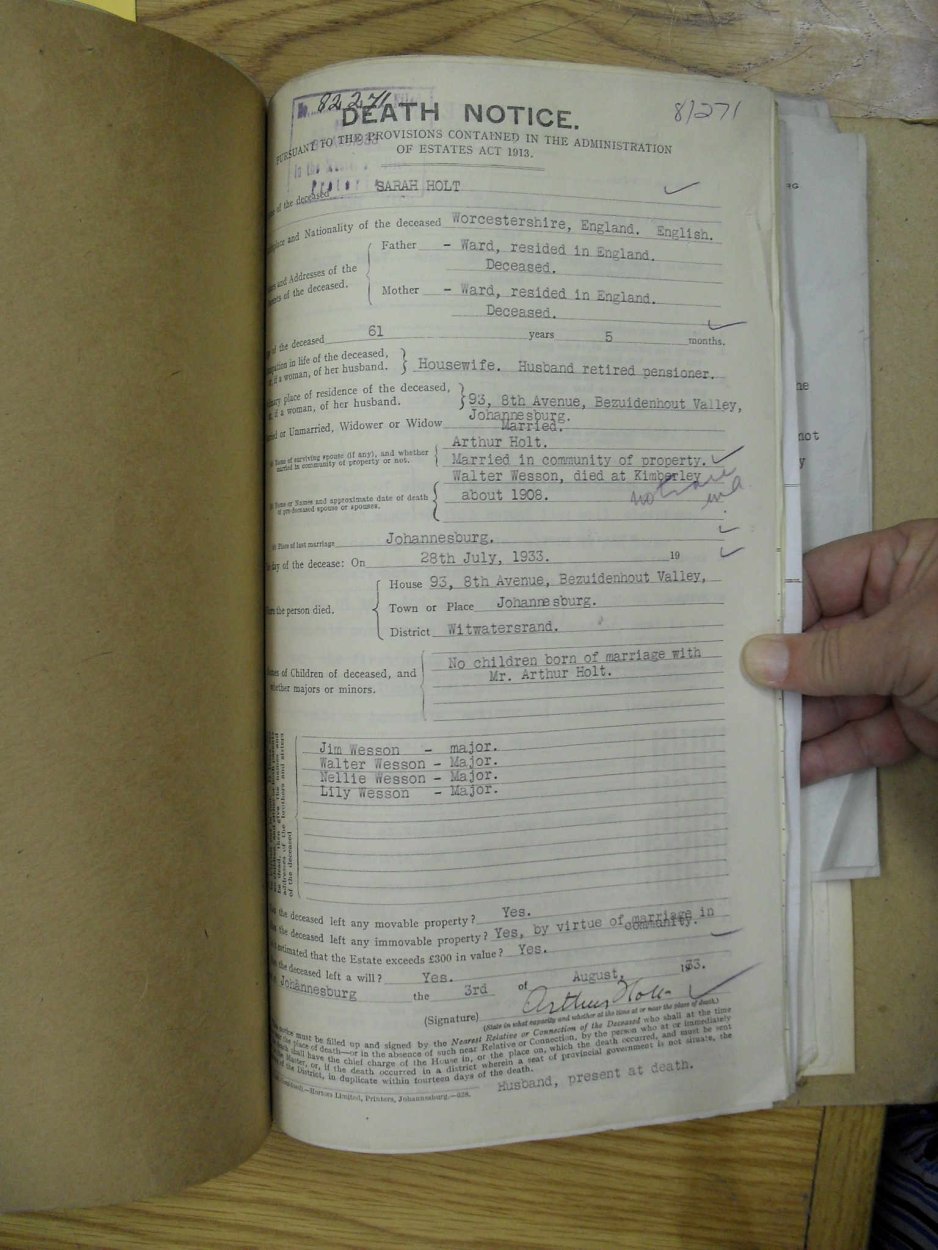 82271
81271
DEATH NOTICE.
PURSUANT TO THE PROVISIONS CONTAINED IN THE ADMINISTRATION
OF ESTATES ACT 1913.
in the
of the deceased SARAH HOLT
and Nationality of the deceased Worcestershire, England. English.
Father - Ward, resided in England.
Deceased.
and Addresses of the
of the deceased.
Mother - Ward, resided in England.
Deceased.
of the deceased 61 years 5 months.
in life of the deceased,
if a woman, of her husband.
Housewife. Husband retired pensioner.
place of residence of the deceased,
if a woman, of her husband.
93, 8th Avenue, Bezuidenhout Valley,
Johannesburg.
or Unmarried, Widower or Widow Married.
Name of surviving spouse (if any), and whether
married in community of property or not.
Arthur Holt.
Married in community of property.
Name or Names and approximate date of death
of pre-deceased spouse or spouses.
Walter Wesson, died at Kimberley
about 1908.
Place of last marriage Johannesburg.
day of the decease: On 28th July, 1933. 19
House 93, 8th Avenue, Bezuidenhout Valley,
the person died.
Town or Place Johannesburg.
District Witwatersrand.
of Children of deceased, and
whether majors or minors.
No children born of marriage with
Mr. Arthur Holt.
Jim Wesson - major.
Walter Wesson - Major.
Nellie Wesson - Major.
Lily Wesson - Major.
addresses of the brothers and sisters
of the deceased
the deceased left any movable property? Yes.
the deceased left any immovable property? Yes, by virtue of marriage in
community.
estimated that the Estate exceeds £300 in value? Yes.
the deceased left a will? Yes.
Johannesburg the 3rd of August, 1933.
(Signature) Arthur Holt
(State in what capacity and whether at the time at or near the place of death.)
notice must be filled up and signed by the Nearest Relative or Connection of the Deceased who shall at the time
the place of death—or in the absence of such near Relative or Connection, by the person who at or immediately
shall have the chief charge of the House in, or the place on, which the death occurred, and must be sent
the Master, or, if the death occurred in a district wherein a seat of provincial government is not situate, the
of the District, in duplicate within fourteen days of the death.
Husband, present at death.
Limited, Printers, Johannesburg.
not